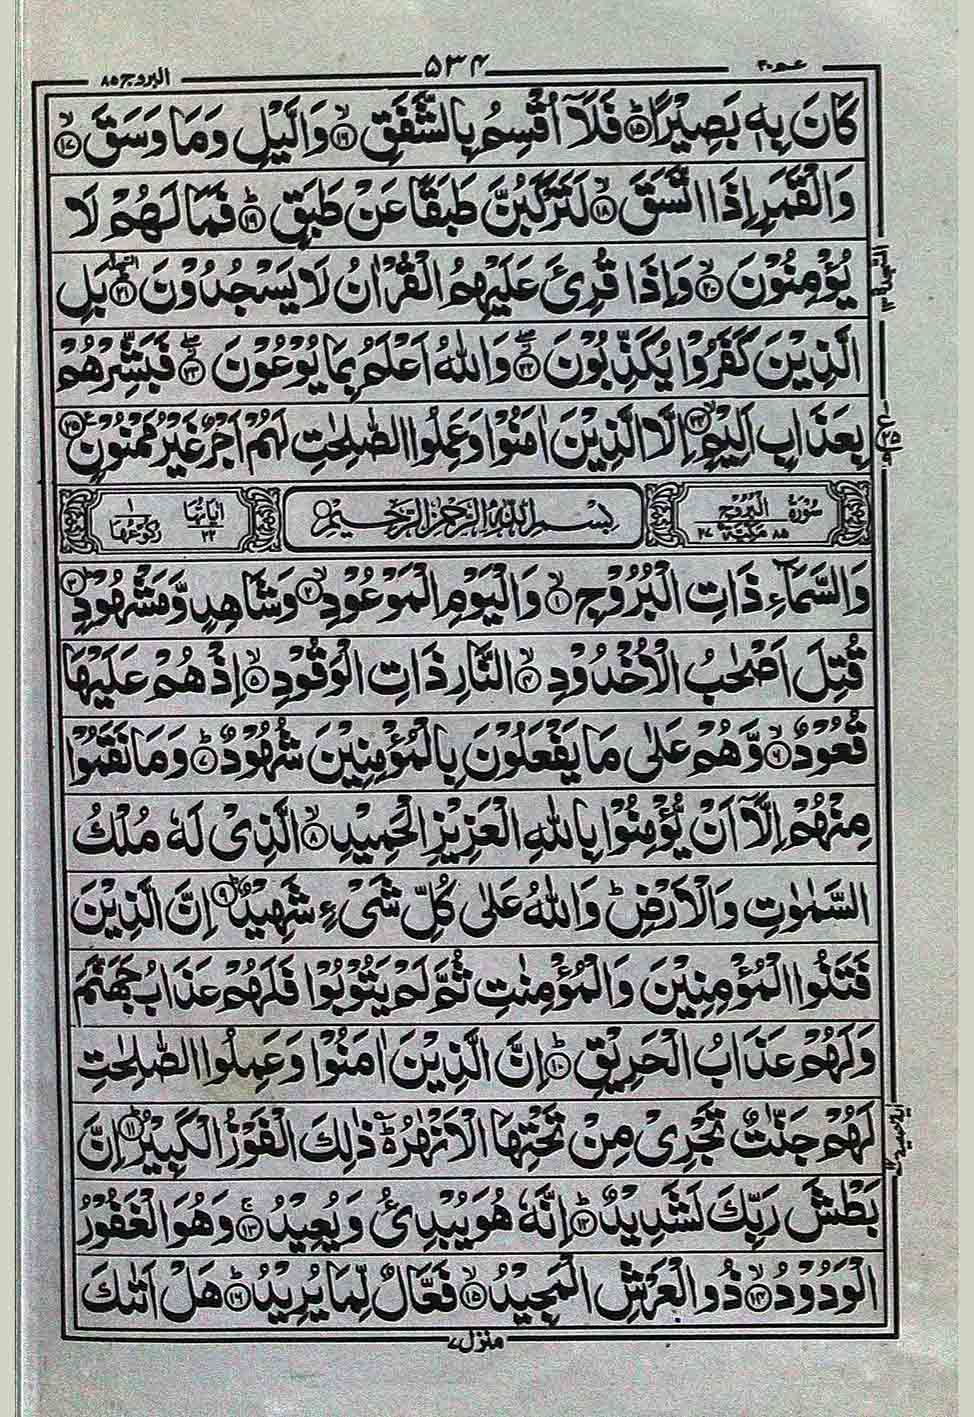 عـم ٣٠
٥٣٤
البروج ٨٥
كَانَ بِهٖ بَصِيْرًاؕ ۝١٥ فَلَاۤ اُقْسِمُ بِالشَّفَقِۙ ۝١٦ وَالَّيْلِ وَمَا وَسَقَۙ ۝١٧
وَالْقَمَرِ اِذَا اتَّسَقَۙ ۝١٨ لَتَرْكَبُنَّ طَبَقًا عَنْ طَبَقٍؕ ۝١٩ فَمَا لَهُمْ لَا
يُؤْمِنُوْنَۙ ۝٢٠ وَاِذَا قُرِئَ عَلَيْهِمُ الْقُرْاٰنُ لَا يَسْجُدُوْنَ ۝٢١ بَلِ
السجدة ١٣
الَّذِيْنَ كَفَرُوْا يُكَذِّبُوْنَ ۝٢٢ وَاللّٰهُ اَعْلَمُ بِمَا يُوْعُوْنَ ۝٢٣ فَبَشِّرْهُمْ
بِعَذَابٍ اَلِيْمٍۙ ۝٢٤ اِلَّا الَّذِيْنَ اٰمَنُوْا وَعَمِلُوا الصّٰلِحٰتِ لَهُمْ اَجْرٌ غَيْرُ مَمْنُوْنٍ ۝٢٥
سُوْرَةُ الْبُرُوْجِ ٨٥ مَكِّيَّةٌ ٢٧
بِسْمِ اللّٰهِ الرَّحْمٰنِ الرَّحِيْمِ
اٰيَاتُهَا ٢٢ رُكُوْعُهَا ١
وَالسَّمَآءِ ذَاتِ الْبُرُوْجِۙ ۝١ وَالْيَوْمِ الْمَوْعُوْدِۙ ۝٢ وَشَاهِدٍ وَّمَشْهُوْدٍؕ ۝٣
قُتِلَ اَصْحٰبُ الْاُخْدُوْدِۙ ۝٤ النَّارِ ذَاتِ الْوَقُوْدِۙ ۝٥ اِذْ هُمْ عَلَيْهَا
قُعُوْدٌۙ ۝٦ وَّهُمْ عَلٰى مَا يَفْعَلُوْنَ بِالْمُؤْمِنِيْنَ شُهُوْدٌؕ ۝٧ وَمَا نَقَمُوْا
مِنْهُمْ اِلَّاۤ اَنْ يُّؤْمِنُوْا بِاللّٰهِ الْعَزِيْزِ الْحَمِيْدِۙ ۝٨ الَّذِىْ لَهٗ مُلْكُ
السَّمٰوٰتِ وَالْاَرْضِؕ وَاللّٰهُ عَلٰى كُلِّ شَىْءٍ شَهِيْدٌؕ ۝٩ اِنَّ الَّذِيْنَ
فَتَنُوا الْمُؤْمِنِيْنَ وَالْمُؤْمِنٰتِ ثُمَّ لَمْ يَتُوْبُوْا فَلَهُمْ عَذَابُ جَهَنَّمَ
وَلَهُمْ عَذَابُ الْحَرِيْقِؕ ۝١٠ اِنَّ الَّذِيْنَ اٰمَنُوْا وَعَمِلُوا الصّٰلِحٰتِ
لَهُمْ جَنّٰتٌ تَجْرِىْ مِنْ تَحْتِهَا الْاَنْهٰرُ ذٰلِكَ الْفَوْزُ الْكَبِيْرُؕ ۝١١ اِنَّ
بَطْشَ رَبِّكَ لَشَدِيْدٌؕ ۝١٢ اِنَّهٗ هُوَ يُبْدِئُ وَيُعِيْدُۚ ۝١٣ وَهُوَ الْغَفُوْرُ
الْوَدُوْدُۙ ۝١٤ ذُو الْعَرْشِ الْمَجِيْدُۙ ۝١٥ فَعَّالٌ لِّمَا يُرِيْدُؕ ۝١٦ هَلْ اَتٰىكَ
منزل ٧